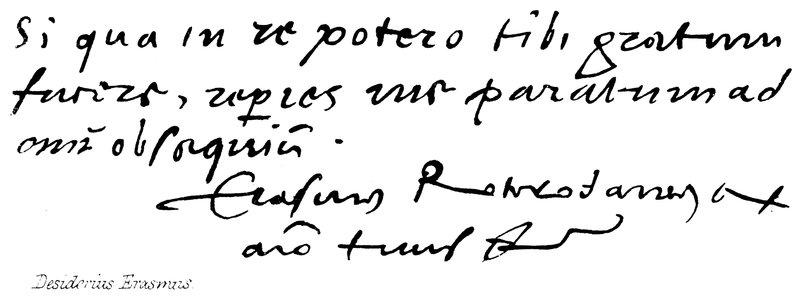 Si qua in re potero tibi gratum
facere, reperies me paratum ad
omē obsequiū.
Erasmus Roterodamus
aīo tuus
Desiderius Erasmus.